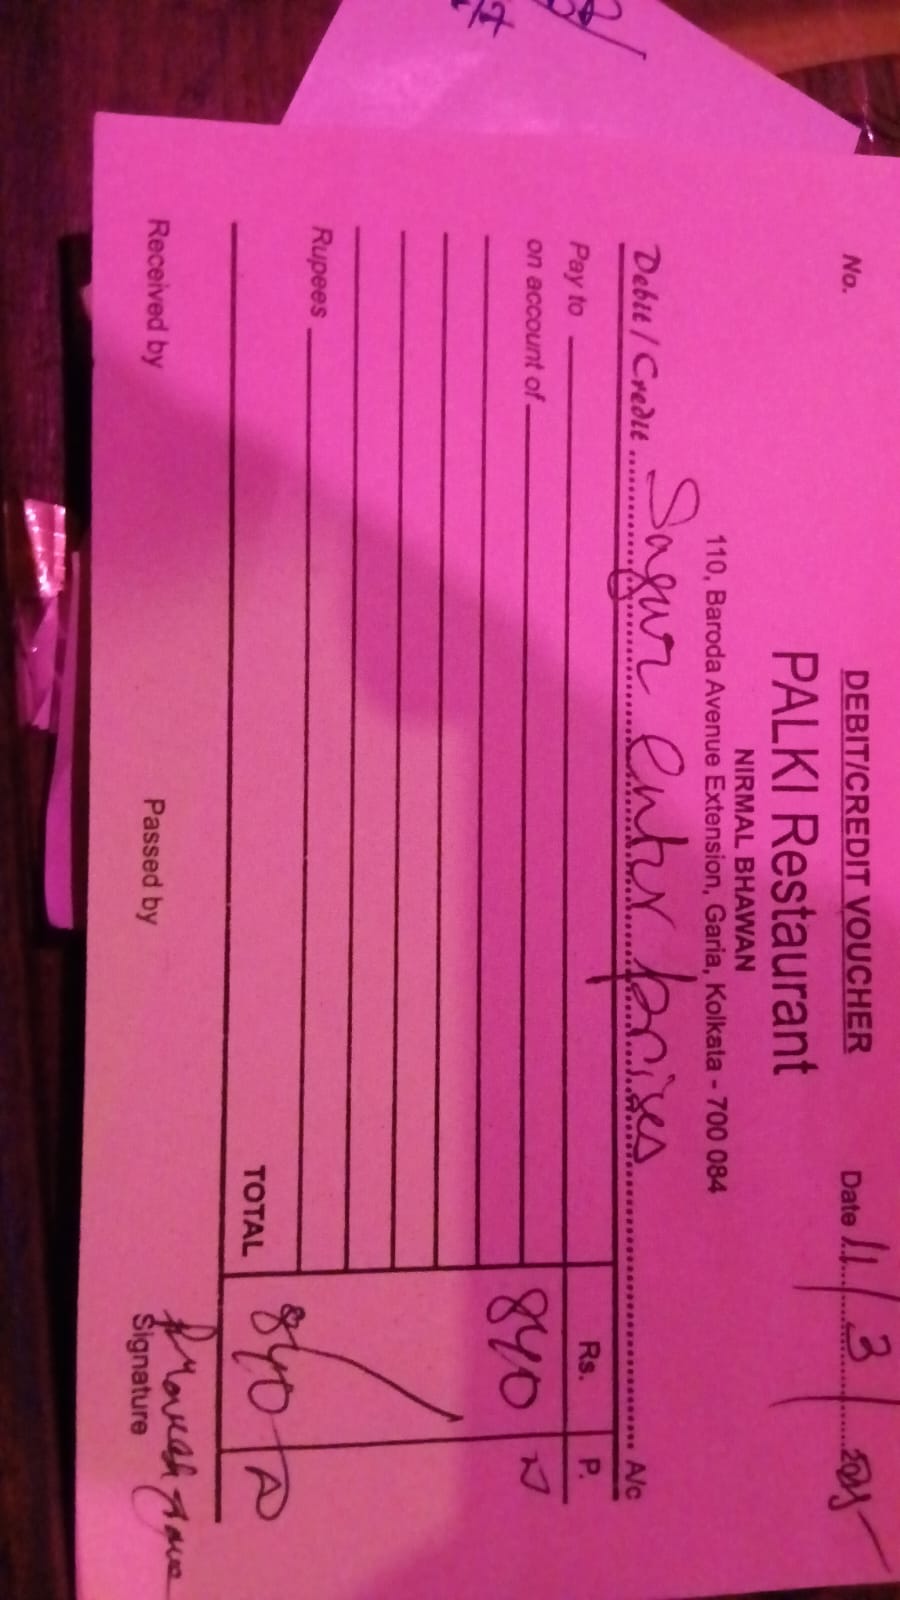 DEBIT/CREDIT VOUCHER
No. Date 11/3/2025
PALKI Restaurant
NIRMAL BHAWAN
110, Baroda Avenue Extension, Garia, Kolkata - 700 084
Debit / Credit Sagur enterprises A/c
Pay to Rs. P.
on account of
840
Rupees
TOTAL 840
Received by Passed by Signature